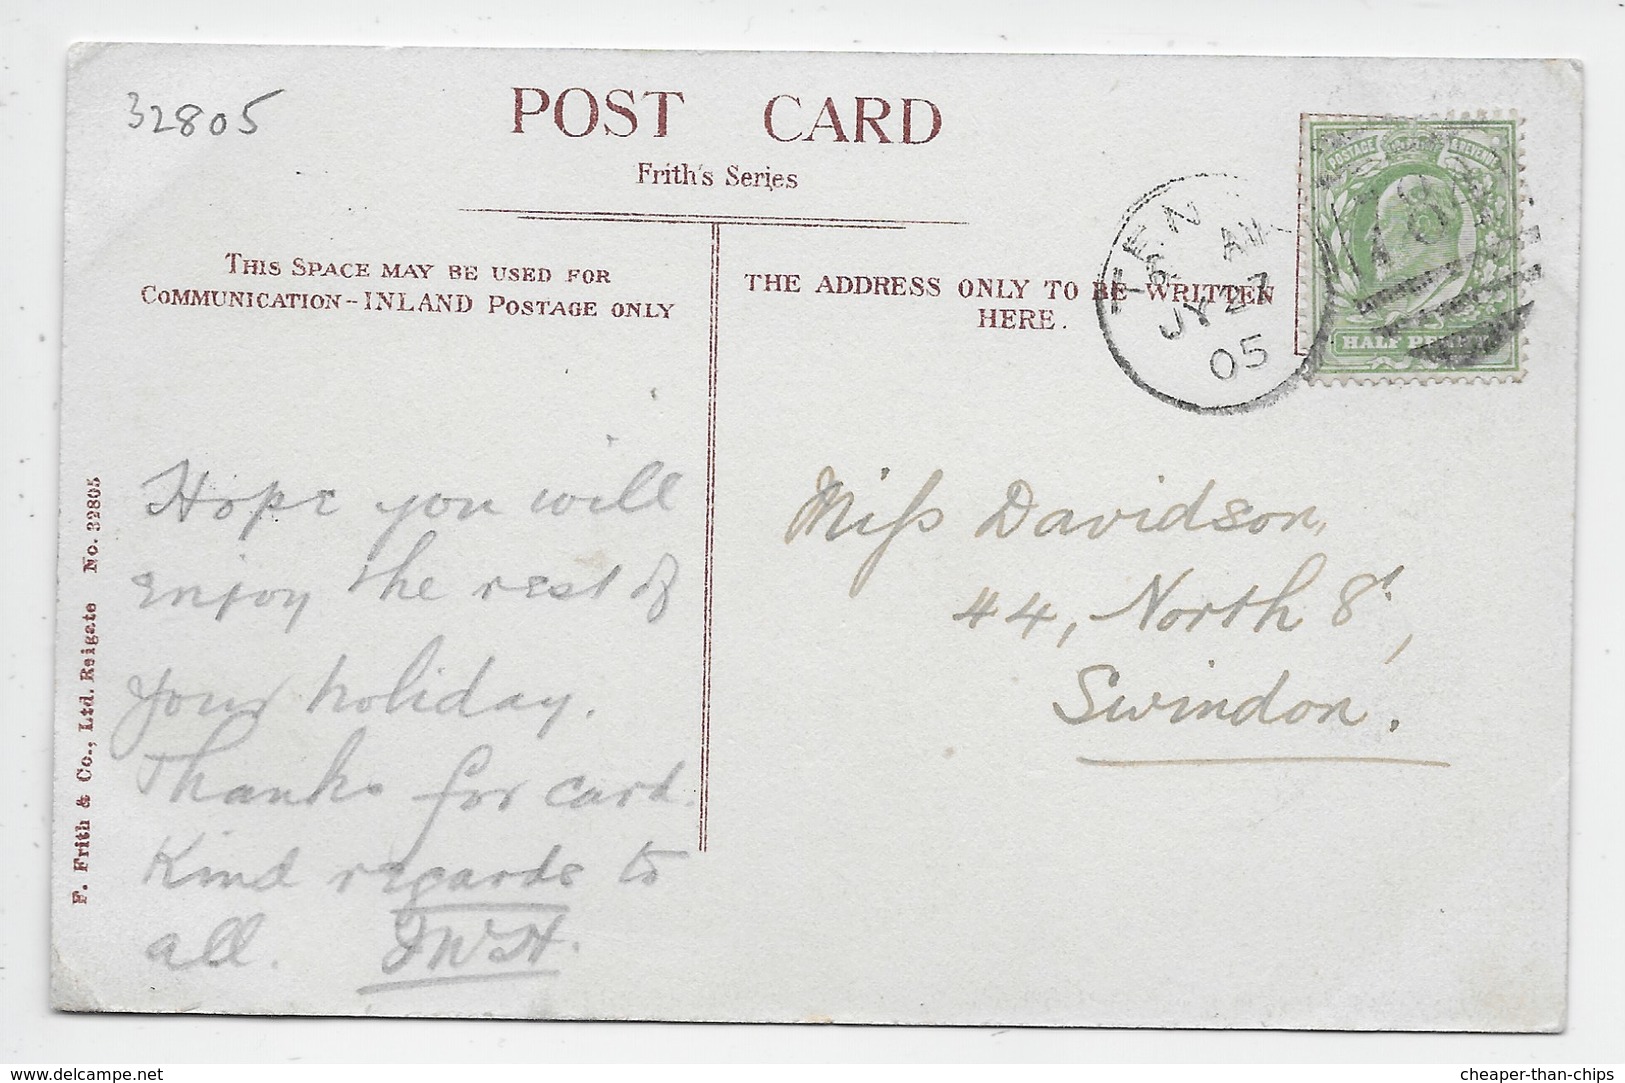 32805
POST CARD
Frith's Series
THIS SPACE MAY BE USED FOR
COMMUNICATION-INLAND POSTAGE ONLY
THE ADDRESS ONLY TO BE WRITTEN
HERE.
AM
JY 27
05
POSTAGE & REVENUE
HALF PENNY
Hope you will
enjoy the rest of
your holiday.
Thanks for card.
Kind regards to
all. JWH.
Miss Davidson,
44, North St,
Swindon.
F. Frith & Co., Ltd. Reigate No. 32805
www.delcampe.net
cheaper-than-chips